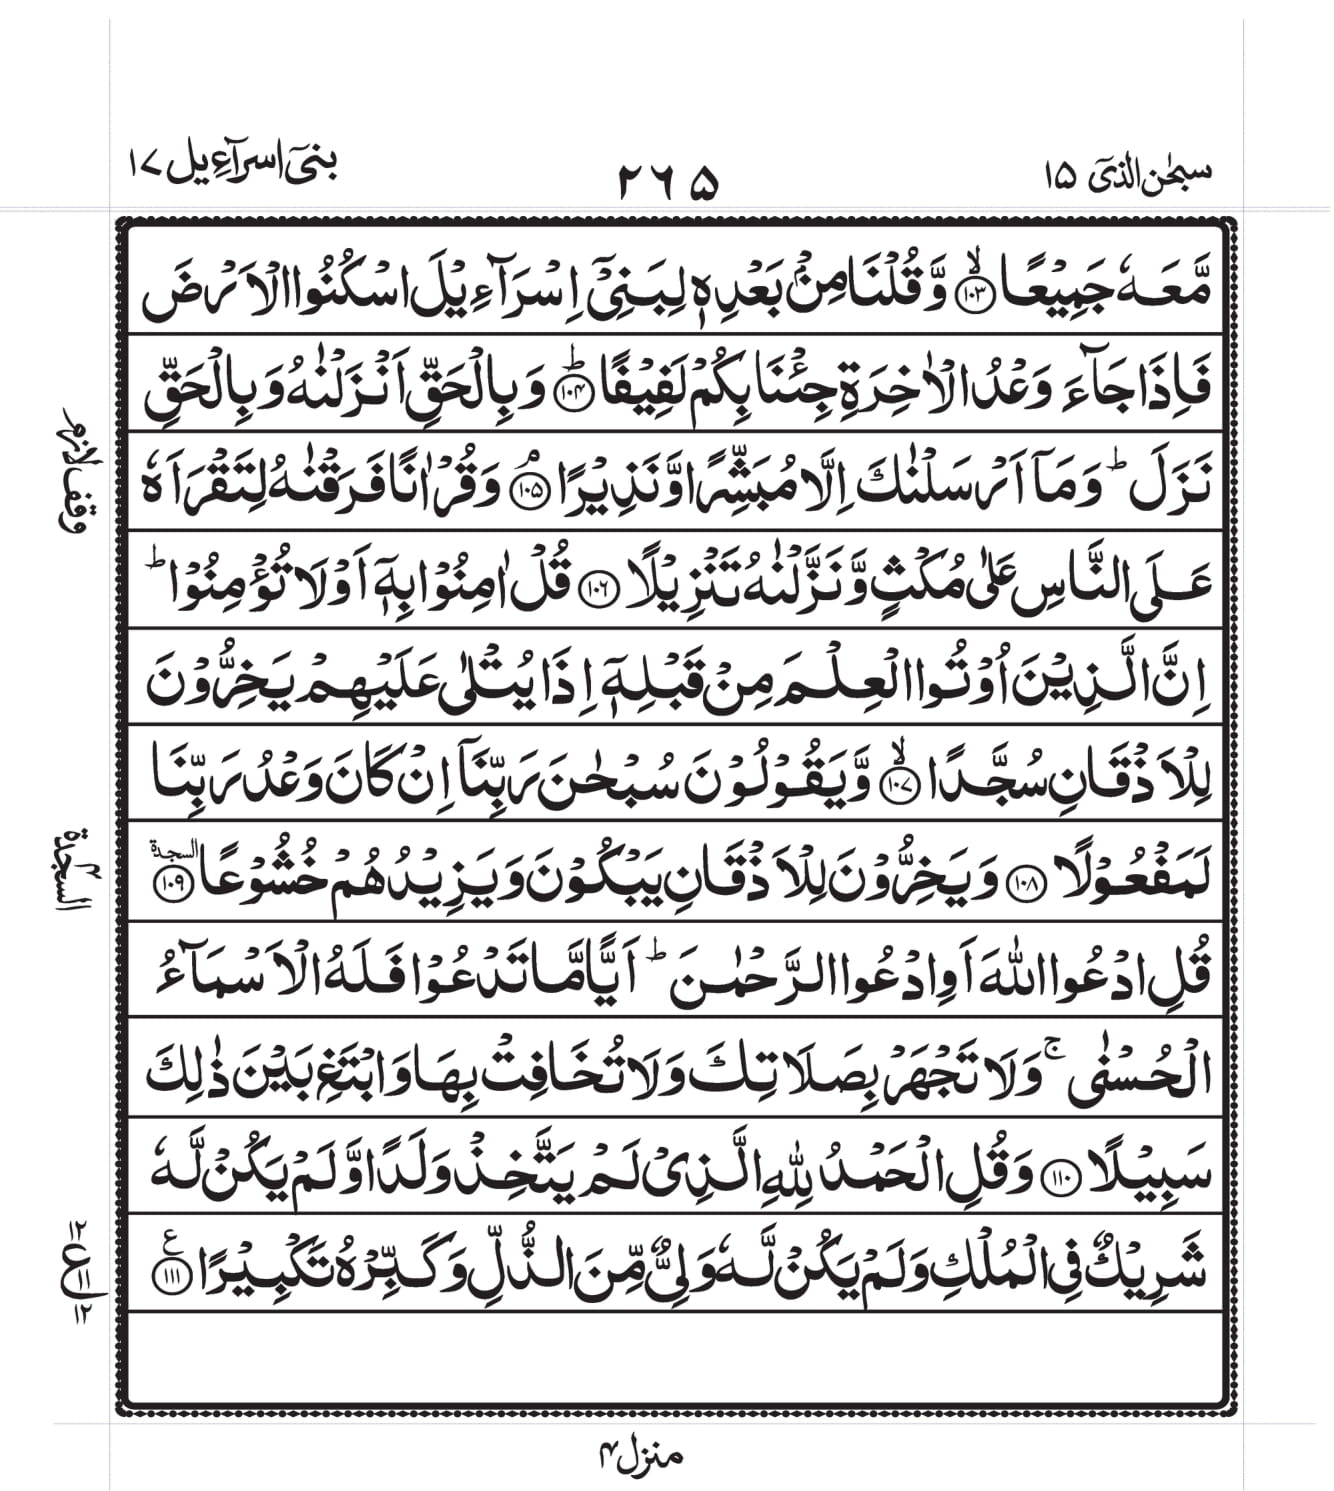 سبحٰن الذیٓ ۱۵
۲۶۵
بنیٓ اسرآءیل ۱۷
مَّعَهٗ جَمِیْعًا ۙ﴿۱۰۳﴾ وَّ قُلْنَا مِنْۢ بَعْدِهٖ لِبَنِیْۤ اِسْرَآءِیْلَ اسْكُنُوا الْاَرْضَ
فَاِذَا جَآءَ وَعْدُ الْاٰخِرَةِ جِئْنَا بِكُمْ لَفِیْفًا ؕ﴿۱۰۴﴾ وَ بِالْحَقِّ اَنْزَلْنٰهُ وَ بِالْحَقِّ
نَزَلَ ؕ وَ مَاۤ اَرْسَلْنٰكَ اِلَّا مُبَشِّرًا وَّ نَذِیْرًا ۘ﴿۱۰۵﴾ وَ قُرْاٰنًا فَرَقْنٰهُ لِتَقْرَاَهٗ
وقف لازم
عَلَی النَّاسِ عَلٰی مُكْثٍ وَّ نَزَّلْنٰهُ تَنْزِیْلًا ﴿۱۰۶﴾ قُلْ اٰمِنُوْا بِهٖۤ اَوْ لَا تُؤْمِنُوْا ؕ
اِنَّ الَّذِیْنَ اُوْتُوا الْعِلْمَ مِنْ قَبْلِهٖۤ اِذَا یُتْلٰی عَلَیْهِمْ یَخِرُّوْنَ
لِلْاَذْقَانِ سُجَّدًا ۙ﴿۱۰۷﴾ وَّ یَقُوْلُوْنَ سُبْحٰنَ رَبِّنَاۤ اِنْ كَانَ وَعْدُ رَبِّنَا
لَمَفْعُوْلًا ﴿۱۰۸﴾ وَ یَخِرُّوْنَ لِلْاَذْقَانِ یَبْكُوْنَ وَ یَزِیْدُهُمْ خُشُوْعًا ﴿۱۰۹﴾ السجدة
السجدة ۴
قُلِ ادْعُوا اللّٰهَ اَوِ ادْعُوا الرَّحْمٰنَ ؕ اَیًّا مَّا تَدْعُوْا فَلَهُ الْاَسْمَآءُ
الْحُسْنٰی ۚ وَ لَا تَجْهَرْ بِصَلَاتِكَ وَ لَا تُخَافِتْ بِهَا وَ ابْتَغِ بَیْنَ ذٰلِكَ
سَبِیْلًا ﴿۱۱۰﴾ وَ قُلِ الْحَمْدُ لِلّٰهِ الَّذِیْ لَمْ یَتَّخِذْ وَلَدًا وَّ لَمْ یَكُنْ لَّهٗ
شَرِیْكٌ فِی الْمُلْكِ وَ لَمْ یَكُنْ لَّهٗ وَلِیٌّ مِّنَ الذُّلِّ وَ كَبِّرْهُ تَكْبِیْرًا ﴿۱۱۱﴾ ع
۱۲ ع ۱۱ ۱۲
منزل ۴